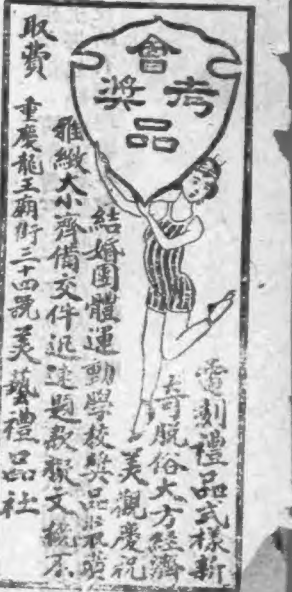 會考獎品
電刻禮品式樣新
奇脫俗大方經濟
美觀慶祝
結婚團體運動學校獎品
雅緻大小齊備交件迅速題款撰文概不
取費 重慶龍王廟街三十四號美藝禮品社